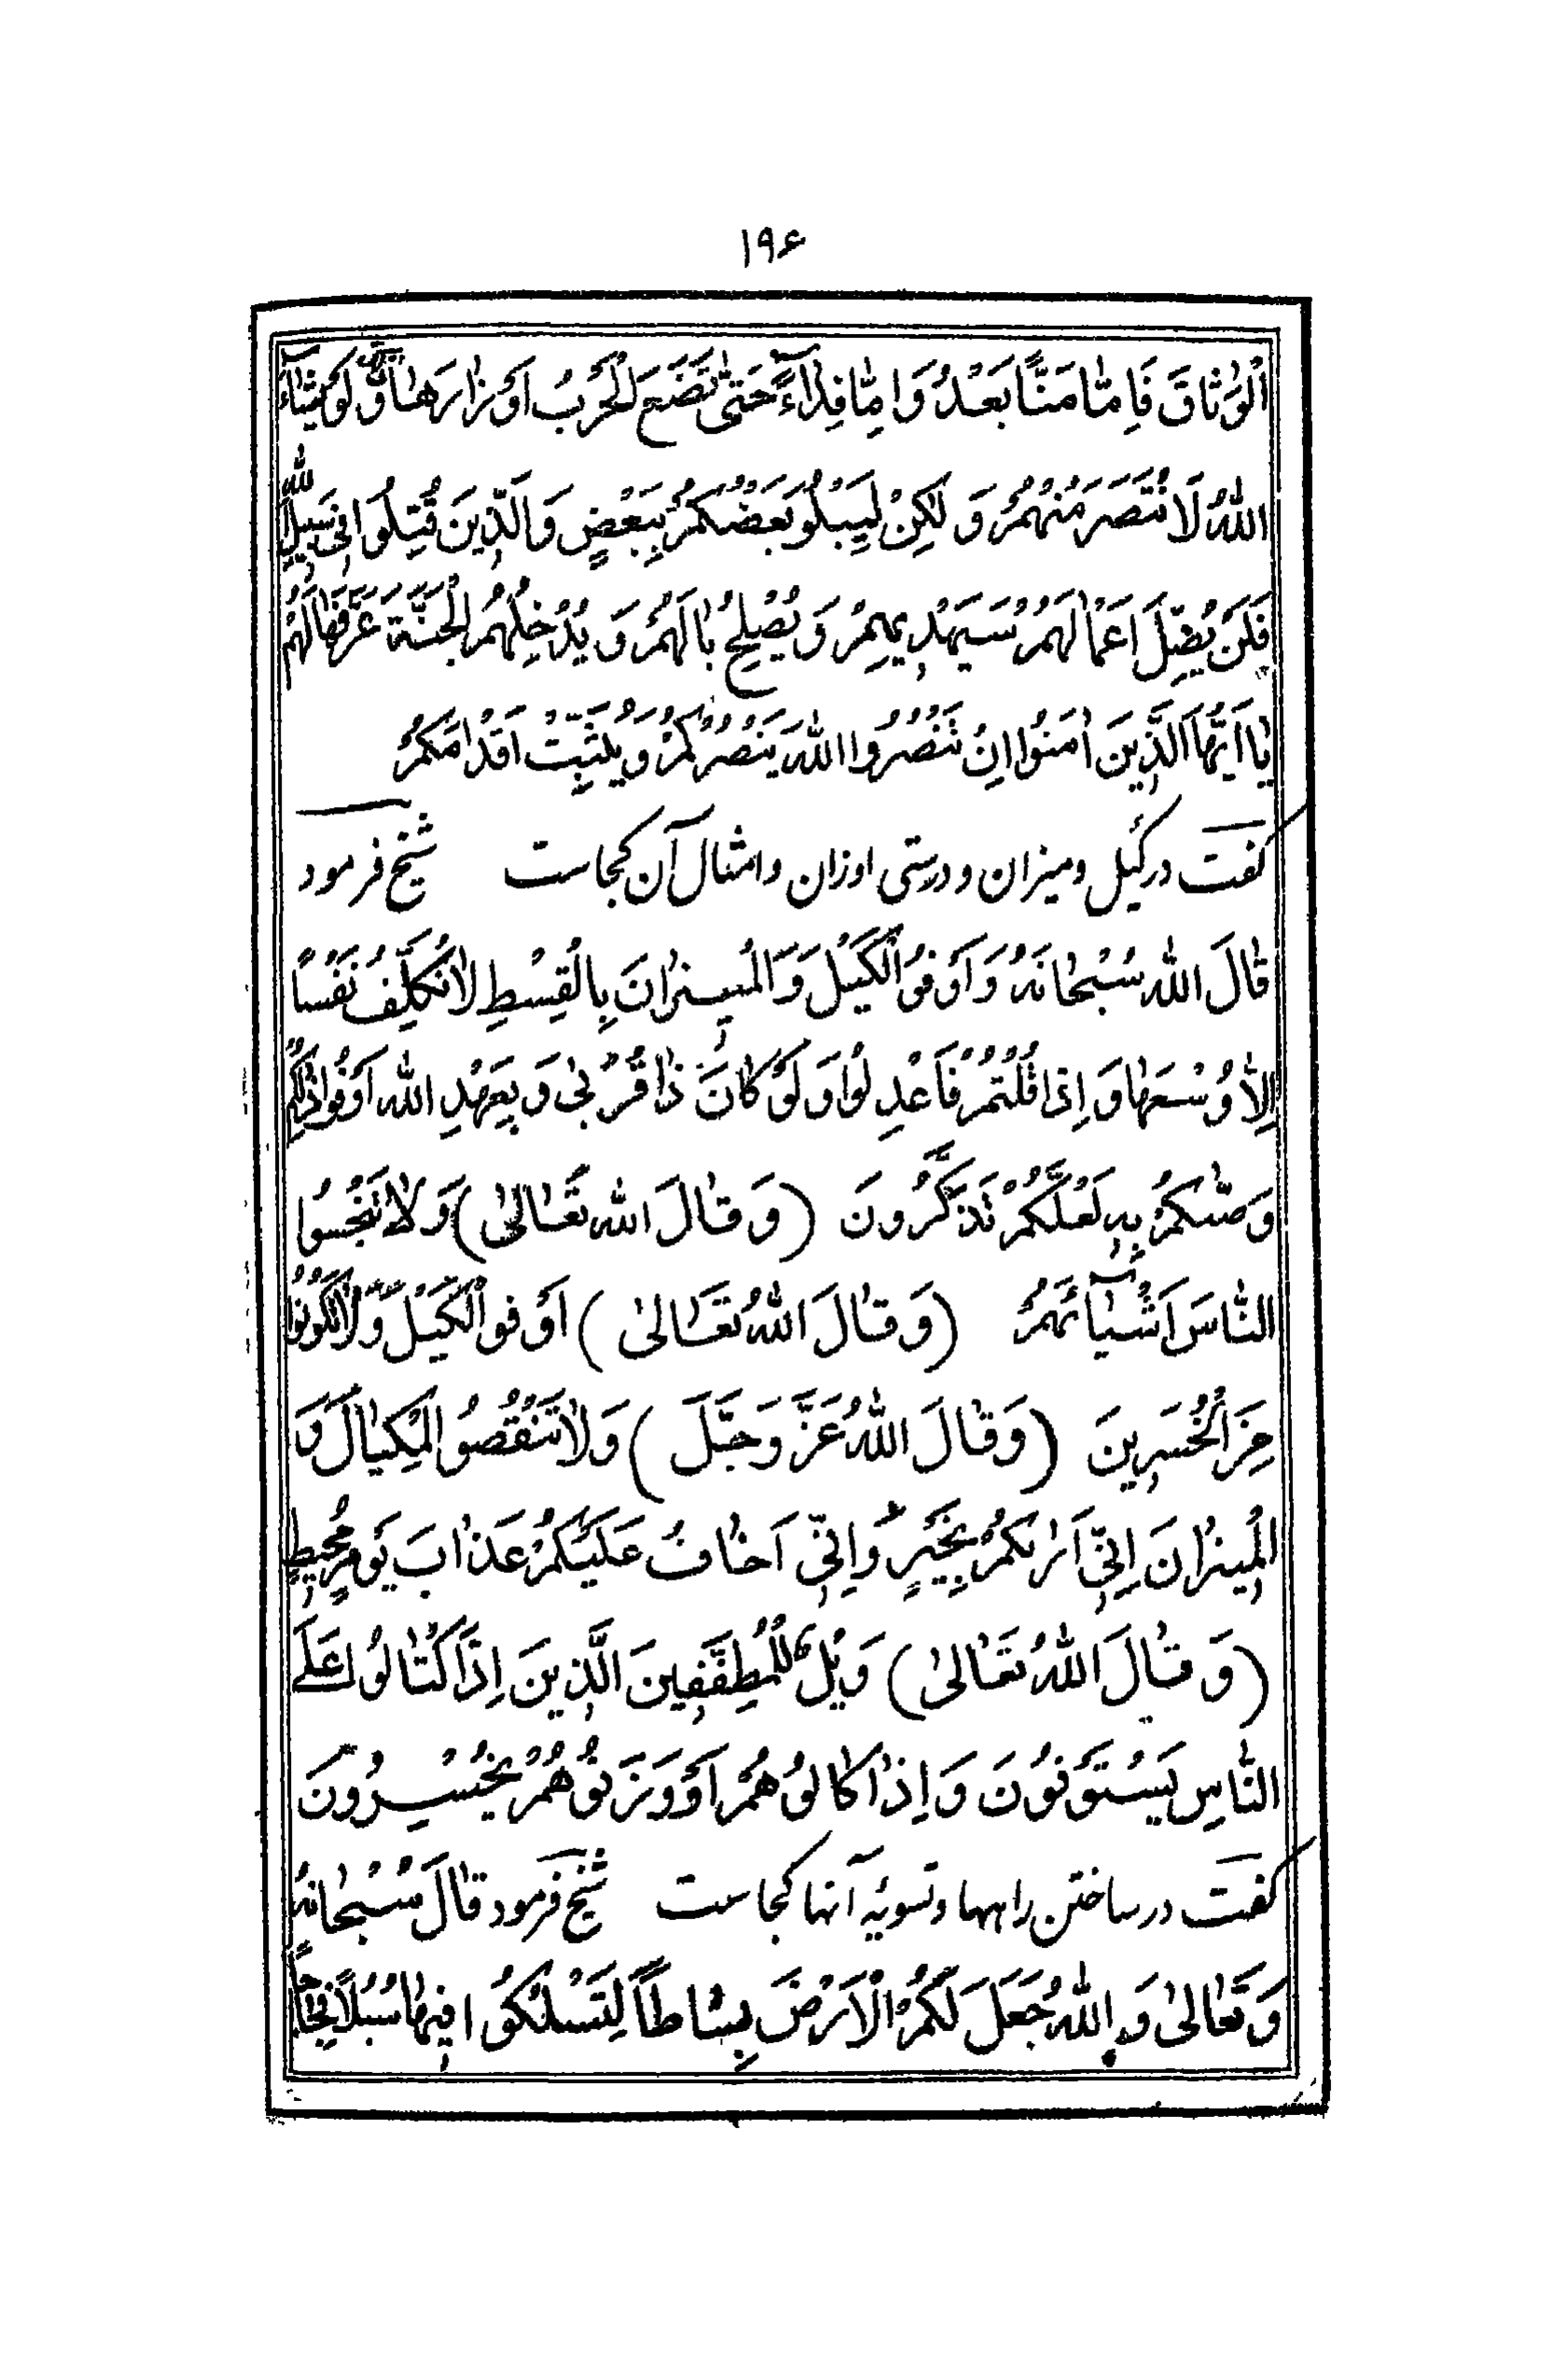 ۱۹۶
اَلْوَثٰاقَ فَاِمّٰا مَنًّا بَعْدُ وَاِمّٰا فِدٰٓاءً حَتّٰى تَضَعَ الْحَرْبُ اَوْزٰارَهٰا وَلَوْ يَشٰٓاءُ
اللهُ لَانْتَصَرَ مِنْهُمْ وَ لٰكِنْ لِيَبْلُوَ بَعْضَكُمْ بِبَعْضٍ وَالَّذِينَ قُتِلُوا فِى سَبِيلِ اللهِ
فَلَنْ يُضِلَّ اَعْمٰالَهُمْ سَيَهْدِيهِمْ وَ يُصْلِحُ بٰالَهُمْ وَ يُدْخِلُهُمُ الْجَنَّةَ عَرَّفَهٰا لَهُمْ
يٰا اَيُّهَا الَّذِينَ اٰمَنُوا اِنْ تَنْصُرُوا اللهَ يَنْصُرْكُمْ وَ يُثَبِّتْ اَقْدٰامَكُمْ
گفت در کیل ومیزان ودرستی اوزان وامثال آن کجاست شیخ فرمود
قٰالَ اللهُ سُبْحٰانَهُ وَ اَوْفُوا الْكَيْلَ وَ الْمِيزٰانَ بِالْقِسْطِ لاٰ نُكَلِّفُ نَفْسًا
اِلاّٰ وُسْعَهٰا وَ اِذٰا قُلْتُمْ فَاعْدِلُوا وَ لَوْ كٰانَ ذٰا قُرْبٰى وَ بِعَهْدِ اللهِ اَوْفُوا ذٰلِكُمْ
وَصّٰىكُمْ بِهِ لَعَلَّكُمْ تَذَكَّرُونَ (وَ قٰالَ اللهُ تَعٰالىٰ) وَ لاٰ تَبْخَسُوا
النّٰاسَ اَشْيٰٓائَهُمْ (وَ قٰالَ اللهُ تَعٰالىٰ) اَوْفُوا الْكَيْلَ وَ لاٰ تَكُونُوا
مِنَ الْمُخْسِرِينَ (وَ قٰالَ اللهُ عَزَّ وَ جَلَّ) وَ لاٰ تَنْقُصُوا الْمِكْيٰالَ وَ
الْمِيزٰانَ اِنِّى اَرٰىكُمْ بِخَيْرٍ وَ اِنِّى اَخٰافُ عَلَيْكُمْ عَذٰابَ يَوْمٍ مُحِيطٍ
(وَ قٰالَ اللهُ تَعٰالىٰ) وَيْلٌ لِلْمُطَفِّفِينَ الَّذِينَ اِذَا اكْتٰالُوا عَلَى
النّٰاسِ يَسْتَوْفُونَ وَ اِذٰا كٰالُوهُمْ اَوْ وَزَنُوهُمْ يُخْسِرُونَ
گفت در ساختن راهها وتسویه آنها کجاست شیخ فرمود قٰالَ سُبْحٰانَهُ
وَ تَعٰالىٰ وَ اللهُ جَعَلَ لَكُمُ الْاَرْضَ بِسٰاطاً لِتَسْلُكُوا فِيهٰا سُبُلًا فِجٰاجاً